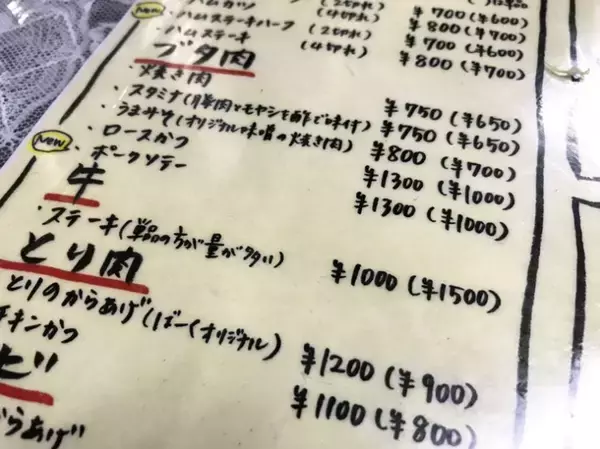 ハムカツ (2切れ) ¥700(¥600)
(4切れ) ¥800(¥700)
New
・ハムステーキハーフ (2切れ) ¥700(¥600)
・ハムステーキ (4切れ) ¥800(¥700)
ブタ肉
・焼き肉 ¥750(¥650)
・スタミナ(豚肉とモヤシを酢で味付) ¥750(¥650)
・うまみそ(オリジナル味噌の焼き肉) ¥800(¥700)
・ロースかつ ¥1300(¥1000)
New
・ポークソテー ¥1300(¥1000)
牛
・ステーキ(単品の方が量が多い) ¥1000(¥1500)
とり肉
とりのからあげ(ばーくオリジナル) ¥1200(¥900)
チキンかつ ¥1100(¥800)
ビ
からあげ